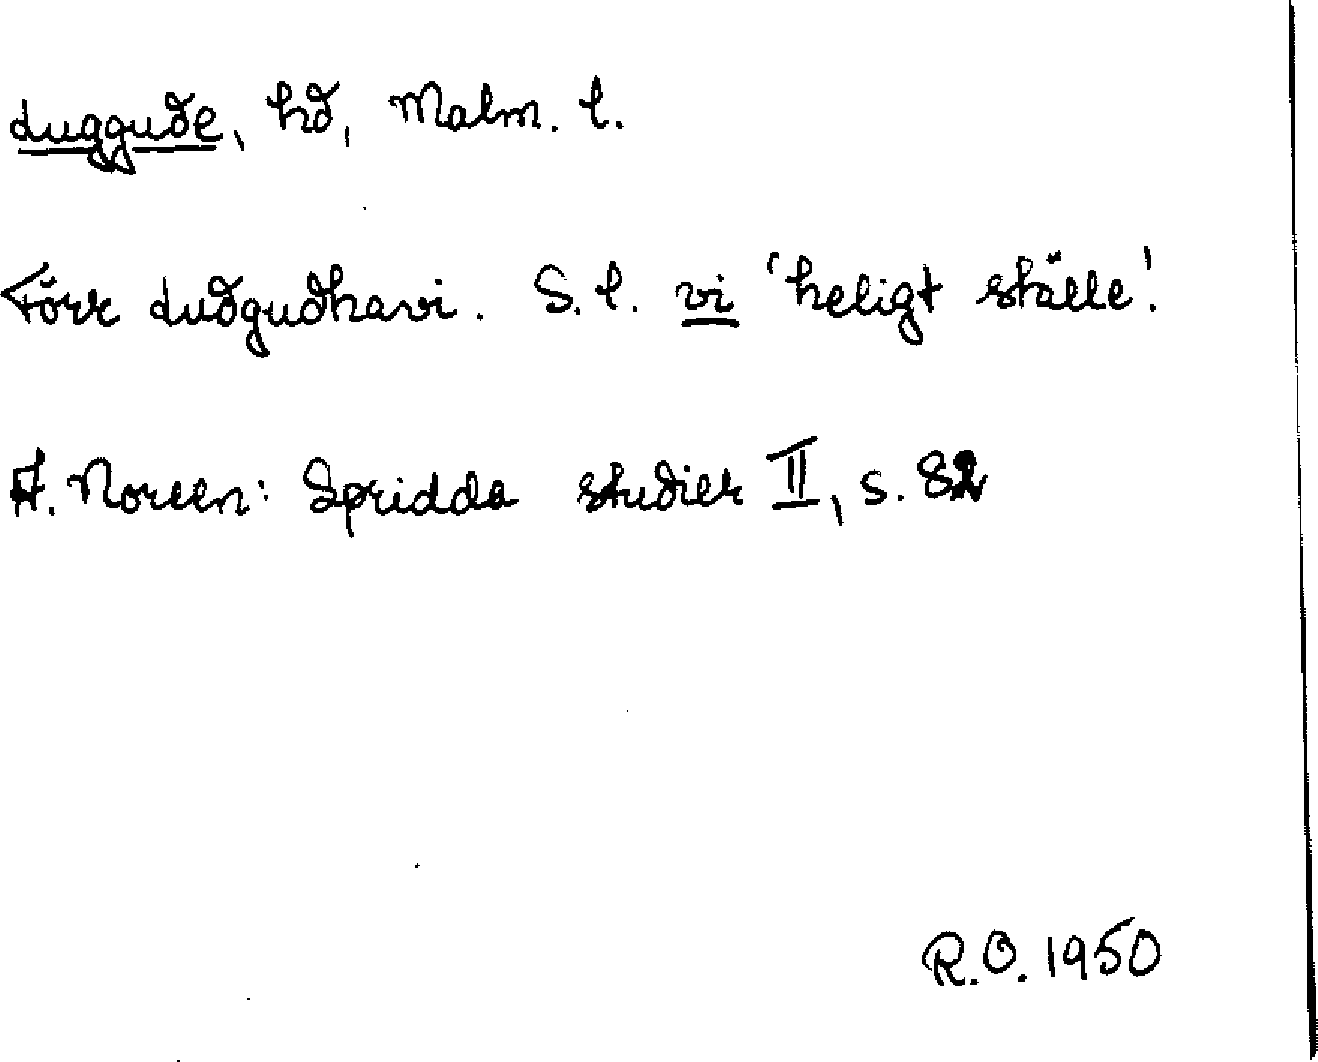 Luggude, hd, Malm. l.
Förr Ludgudhavi. S. l. vi 'heligt ställe'.
A. Noreen: Spridda studier II, s. 82
R.O. 1950